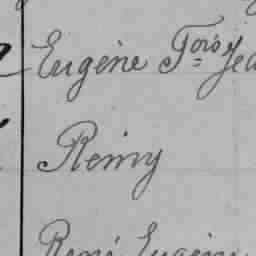 Eugène Fois Jea
Rémy
René Eugène